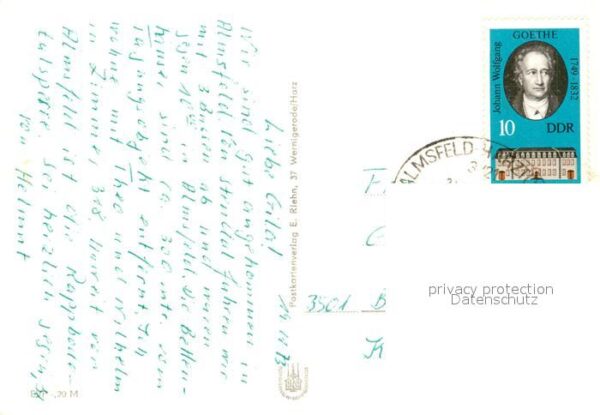 14.12.73
Liebe Gilla!
Wir sind gut angekommen in
Almsfeld. Von Stendal fuhren wir
mit 3 Bussen ab und waren
gegen 18°° in Almsfeld. Die Betten-
häuser sind ca. 300 mtr. vom
Tagungsobjekt entfernt. Ich
wohne mit Theo und Wilhelm
in Zimmer 328. Unweit von
Almsfeld ist die Rappbode-
talsperre. Sei herzlich gegrüßt
von Helmut
Postkartenverlag E. Riehn, 37 Wernigerode/Harz
-,20 M
Johann Wolfgang
GOETHE
1749-1832
10
DDR
ALMSFELD
3501 B
K
privacy protection
Datenschutz